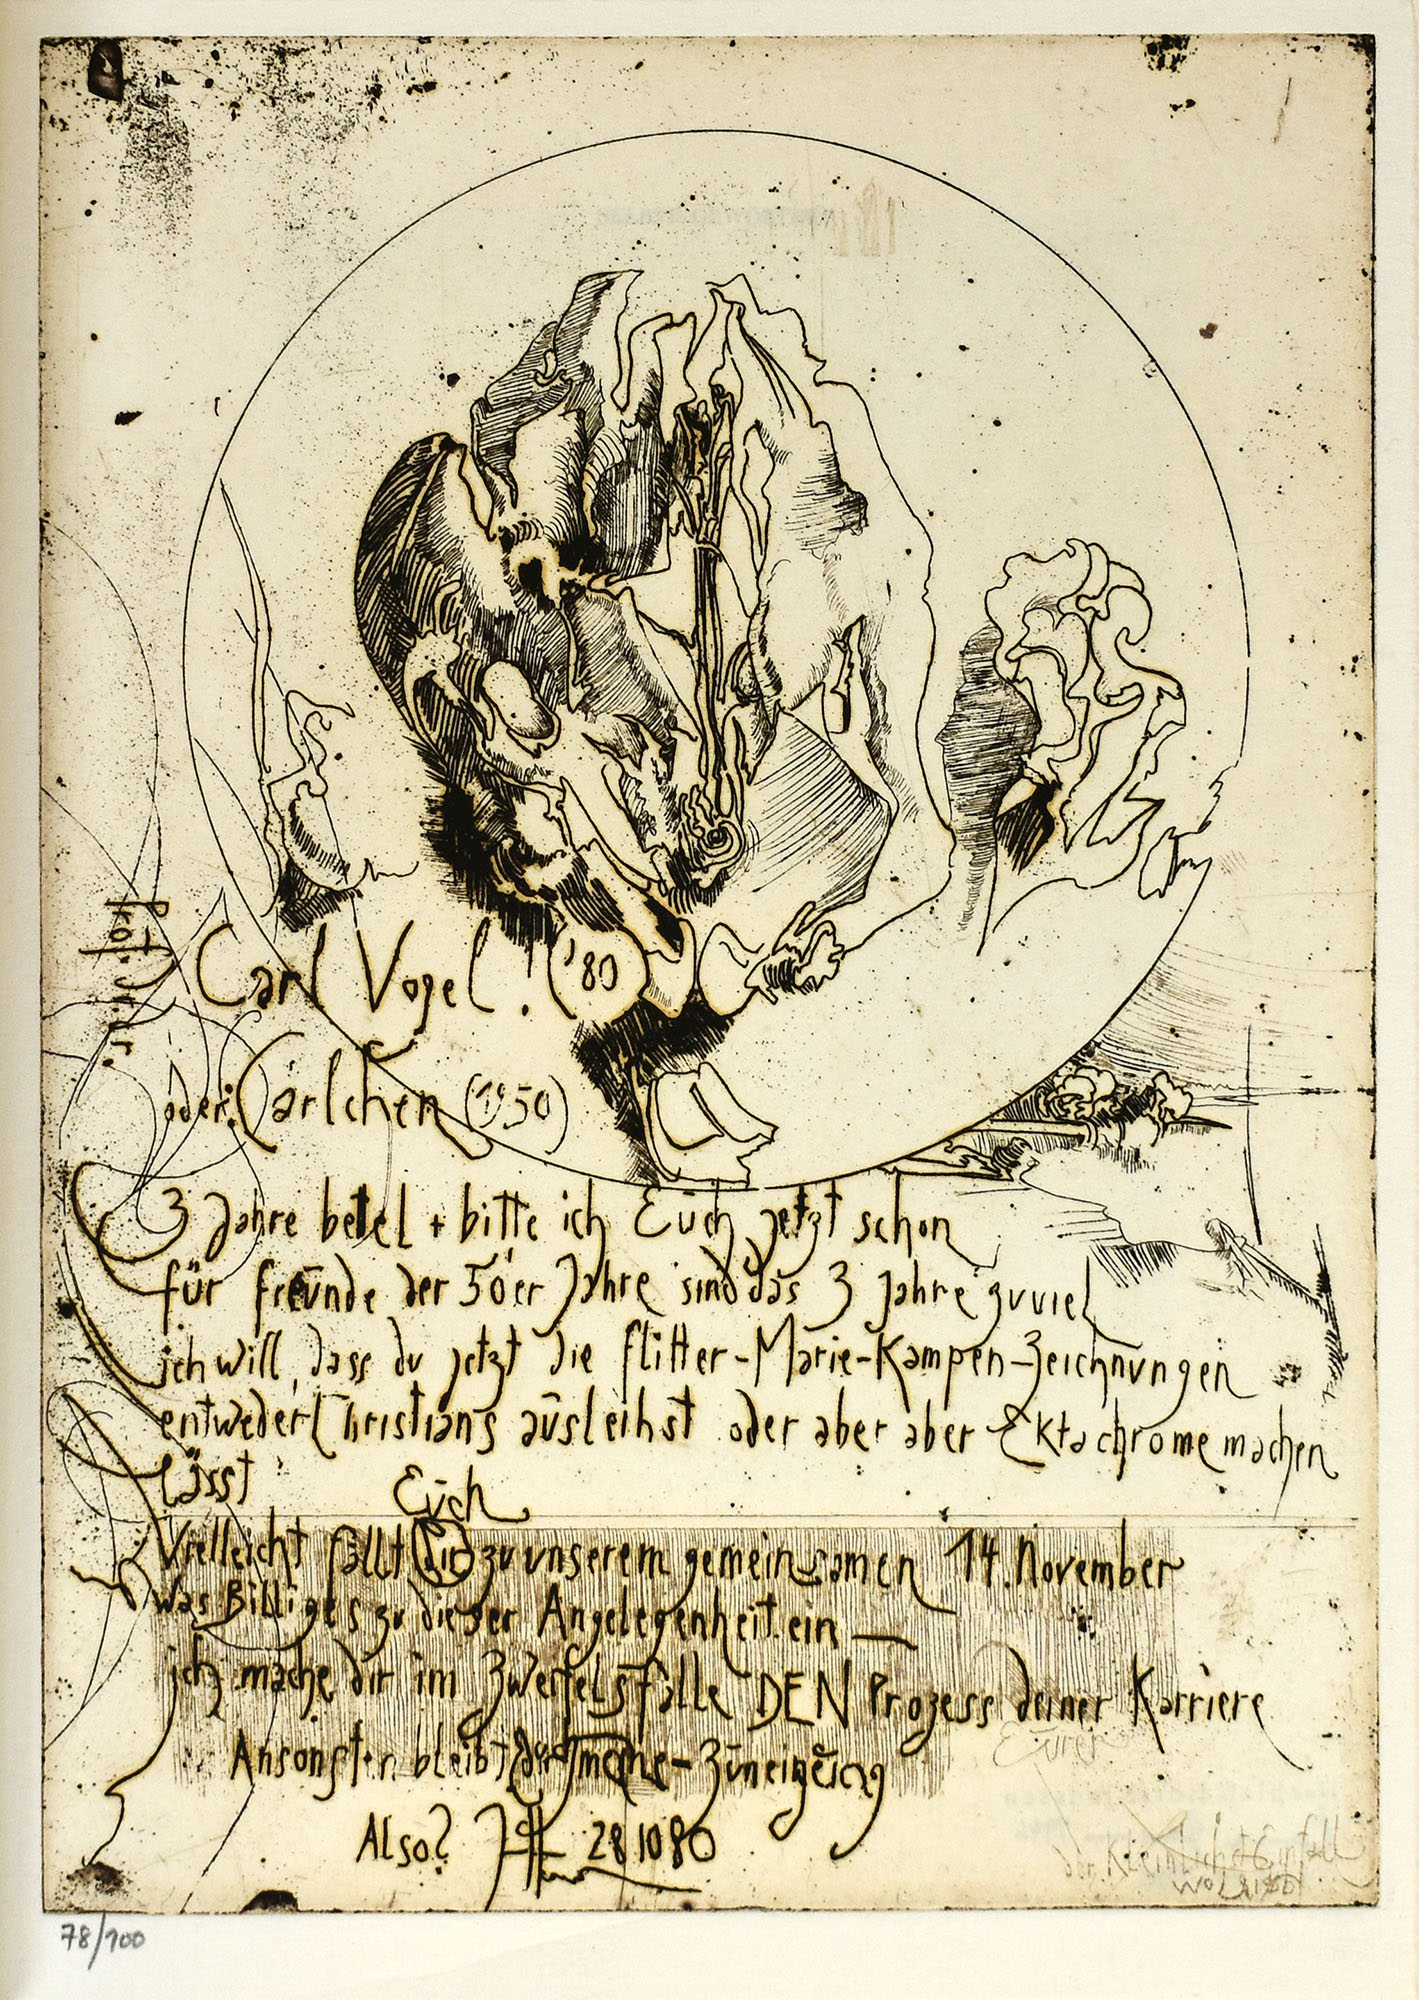 Prof. Dr. Dr.
Carl Vogel! ('80)
oder: Carlchen (1950)
3 Jahre bettel + bitte ich Euch jetzt schon
für freunde der 50'er Jahre sind das 3 Jahre zuviel
ich will, dass du jetzt die flitter-Marie-Kampen-Zeichnungen
entweder Christians ausleihst oder aber aber Ektachrome machen
lässt
Euch
Vielleicht fällt dir zu unserem gemeinsamen 14. November
was Billiges zu dieser Angelegenheit ein —
ich mache dir im Zweifelsfalle DEN Prozess deiner Karriere
Eurer
Ansonsten bleibt dir meine - Zuneigung
Also? 28 10 80
der Einfall
78/100